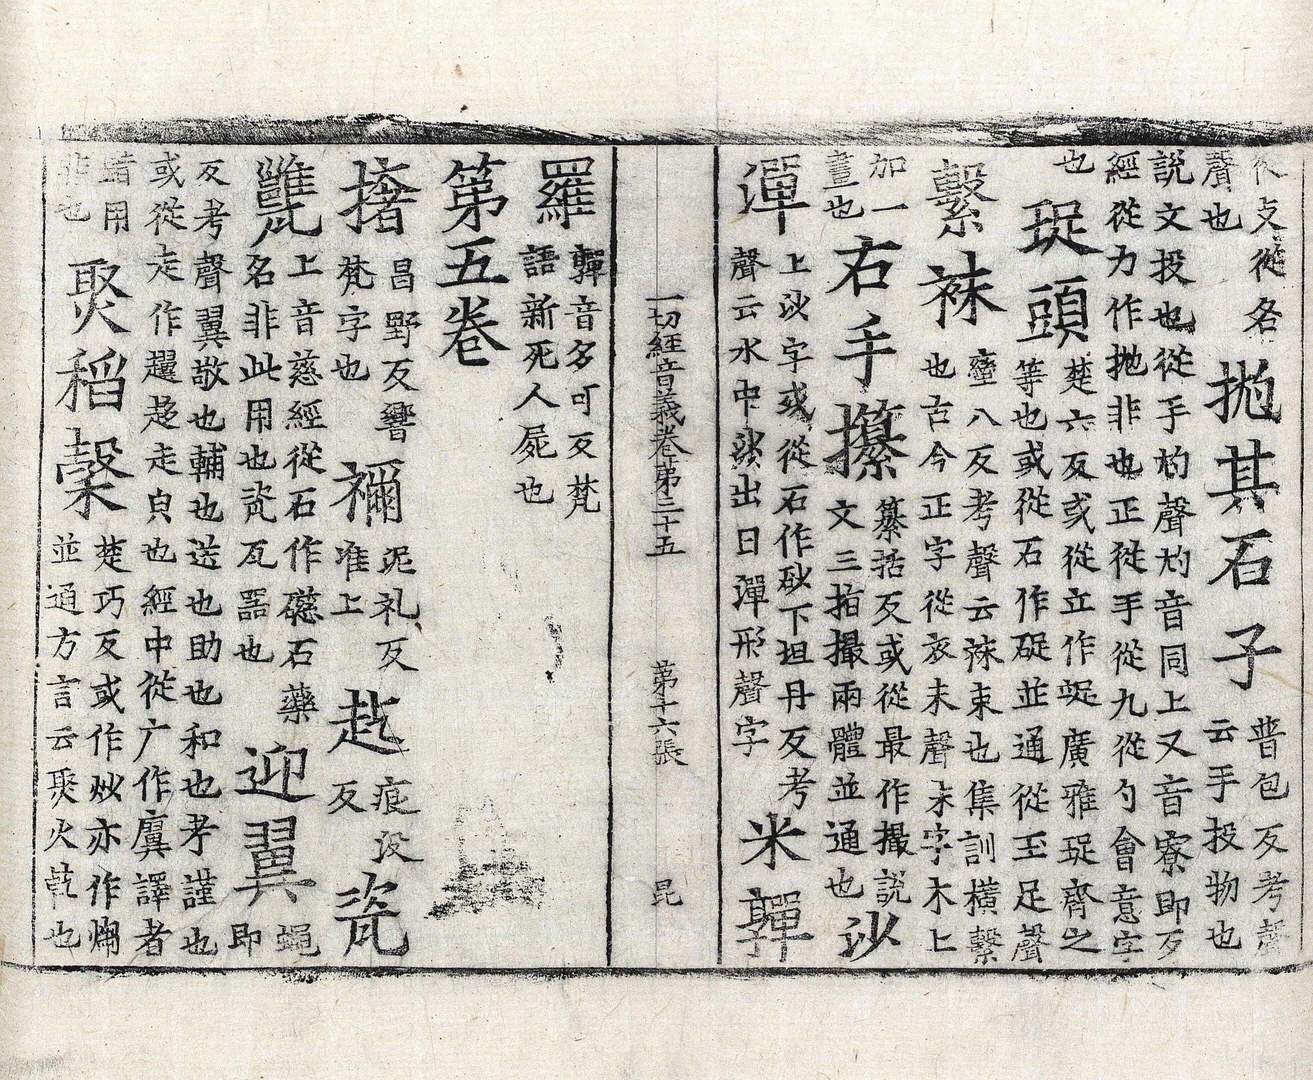 從攴從名
聲也
拋其石子
普包反考聲
云手投物也
說文投也從手尥聲尥音同上又音寮即反
經從力作拋非也正從手從九從力會意字
也
珿頭
楚六反或從立作娖廣雅珿齊之
等也或從石作碇並通從玉足聲
繫袜
蠻八反考聲云袜束也集訓橫繫
也古今正字從衣末聲末字木上
加一
畫也
右手攥
纂括反或從最作撮說
文三指撮兩體並通也
沙潬
上沙字或從石作砂下坦丹反考
聲云水中沙出曰潬形聲字
米嚲羅
嚲音多可反梵
語新死人屍也
一切經音義卷第三十五
第十六張
昆
第五卷
撦
昌野反響
梵字也
禰
泥礼反
准上
趁
痕没
反
瓷甆
上音慈經從石作礠石藥
名非此用也瓷瓦器也
迎翼
蠅即
反考聲翼敬也輔也送也助也和也孝謹也
或從走作趩趍走皃也經中從广作廙譯者
錯用
非也
聚稻糓
楚巧反或作炒亦作煼
並通方言云聚火乾也